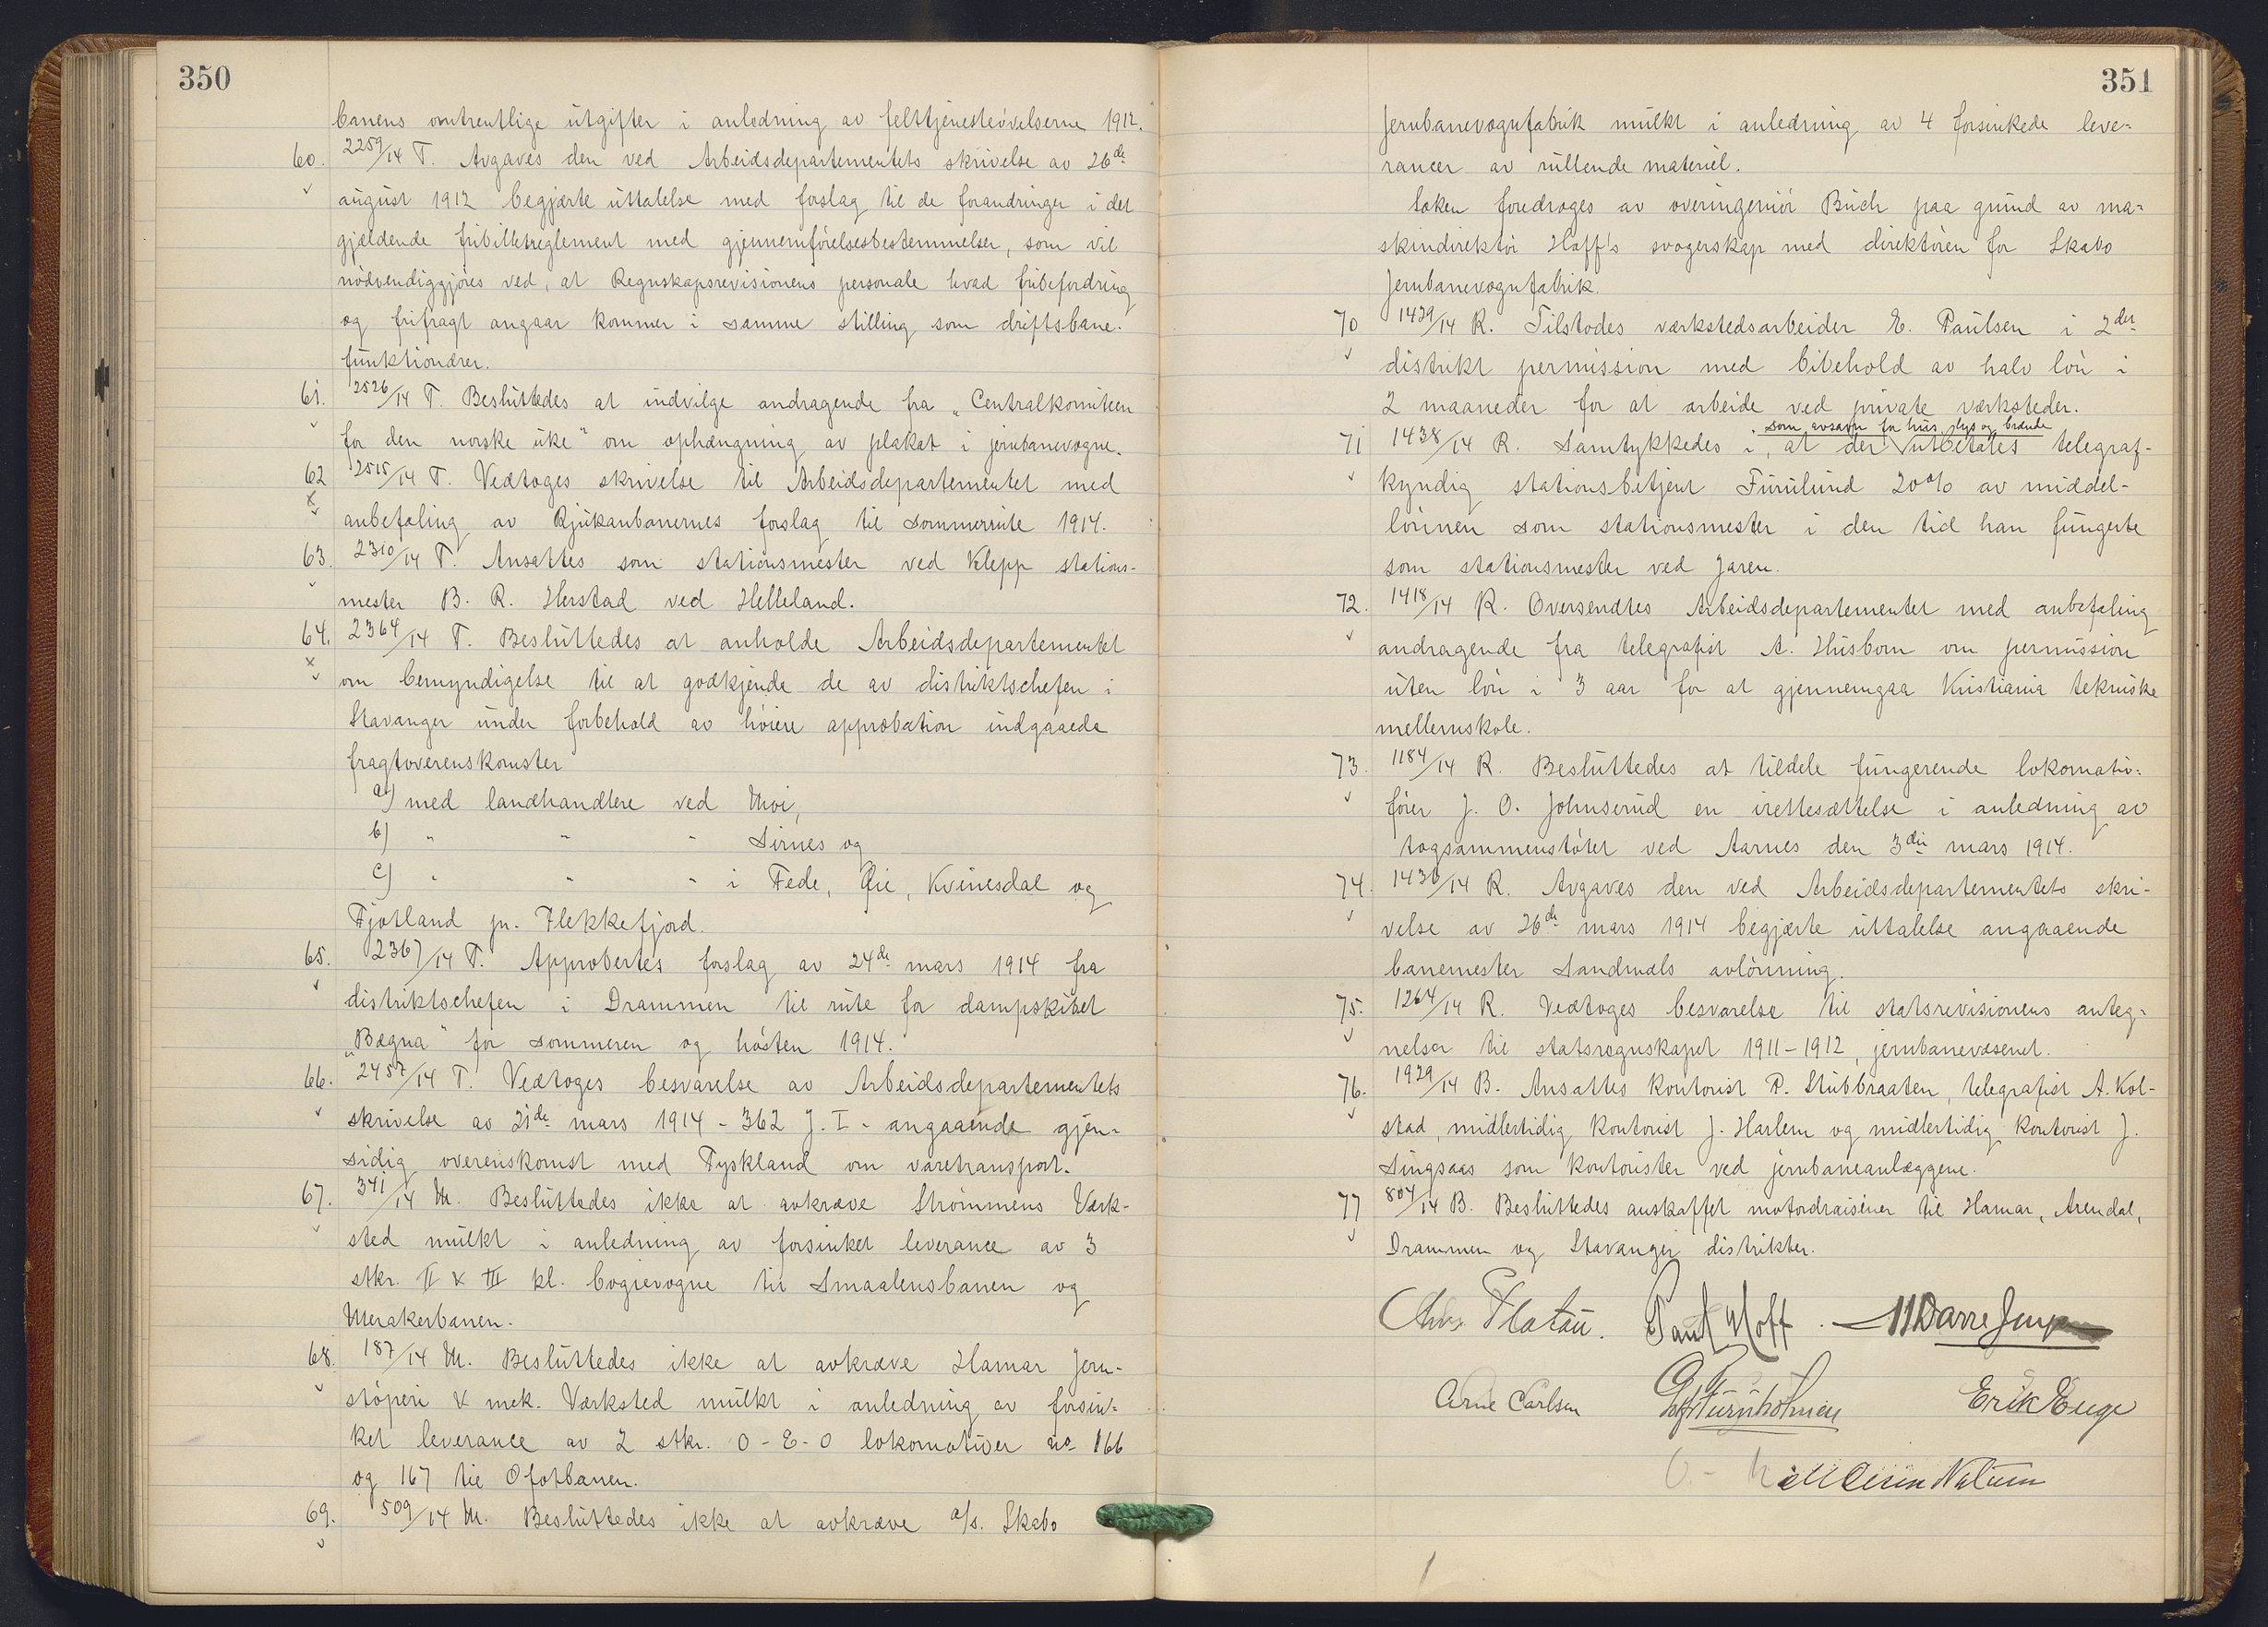 350
banens omtrentlige utgifter i anledning av felttjenesteøvelserne 1912.
60. 2259/14 T. Avgaves den ved Arbeidsdepartementets skrivelse av 26de
august 1912 begjærte uttalelse med forslag til de forandringer i det
gjældende fribilletreglement med gjennemførelsesbestemmelser, som vil
nødvendiggjøres ved, at Regnskapsrevisionens personale hvad fribefordring
og frifragt angaar kommer i samme stilling som driftsbane-
funktionærer.
61. 2526/14 T. Besluttedes at indvilge andragende fra „Centralkomiteen
for den norske uke" om ophængning av plakat i jernbanevogne.
62 2515/14 T. Vedtoges skrivelse til Arbeidsdepartementet med
anbefaling av Rjukanbanernes forslag til sommerrute 1914.
63. 2310/14 T. Ansattes som stationsmester ved Klepp stations-
mester B. R. Herstad ved Helleland.
64. 2364/14 T. Besluttedes at anholde Arbeidsdepartementet
om bemyndigelse til at godkjende de av distriktschefen i
Stavanger under forbehold av høiere approbation indgaaede
fragtoverenskomster
a) med landhandlere ved Moi,
b) " " " Sirnes og
c) " " " i Fede, Øie, Kvinesdal og
Fjotland pr. Flekkefjord.
65. 2367/14 T. Approbertes forslag av 24de mars 1914 fra
distriktschefen i Drammen til rute for dampskibet
„Bægna" for sommeren og høsten 1914.
66. 2457/14 T. Vedtoges besvarelse av Arbeidsdepartementets
skrivelse av 21de mars 1914 - 362 J. I - angaaende gjen-
sidig overenskomst med Tyskland om varetransport.
67. 341/14 M. Besluttedes ikke at avkræve Strømmens Værk-
sted mulkt i anledning av forsinket leverance av 3
stkr. II & III kl. bogievogne til Smaalensbanen og
Merakerbanen.
68. 187/14 M. Besluttedes ikke at avkræve Hamar Jern-
støperi & mek. Værksted mulkt i anledning av forsin-
ket leverance av 2 stkr. 0-E-0 lokomotiver no 166
og 167 til Ofotbanen.
69. 509/14 M. Besluttedes ikke at avkræve a/s. Skabo
351
Jernbanevognfabrik mulkt i anledning av 4 forsinkede leve-
rancer av rullende materiel.
Saken foredroges av overingeniør Buch paa grund av ma-
skindirektør Hoff's svogerskap med direktøren for Skabo
Jernbanevognfabrik.
70 1429/14 R. Tilstodes værkstedsarbeider E. Paulsen i 2det
distrikt permission med bibehold av halv løn i
2 maaneder for at arbeide ved private værksteder.
som avsavn for hus, lys og brænde
71 1438/14 R. Samtykkedes i, at der utbetales telegraf-
kyndig stationsbetjent Furulund 20% av middel-
lønnen som stationsmester i den tid han fungerte
som stationsmester ved Jaren.
72. 1418/14 R. Oversendtes Arbeidsdepartementet med anbefaling
andragende fra telegrafist A. Husbom om permission
uten løn i 3 aar for at gjennemgaa Kristiania tekniske
mellemskole.
73. 1184/14 R. Besluttedes at tildele fungerende lokomotiv-
fører J. O. Johnserud en irettesættelse i anledning av
togsammenstøtet ved Aarnes den 3die mars 1914.
74. 1430/14 R. Avgaves den ved Arbeidsdepartementets skri-
velse av 26de mars 1914 begjærte uttalelse angaaende
banemester Sandmæls avlønning.
75. 1264/14 R. Vedtoges besvarelse til statsrevisionens anteg-
nelser til statsregnskapet 1911-1912, jernbanevæsenet.
76. 1929/14 B. Ansattes kontorist P. Stubbraaten, telegrafist A. Kol-
stad, midlertidig kontorist J. Harlem og midlertidig kontorist J.
Singsaas som kontorister ved jernbaneanlæggene.
77 804/14 B. Besluttedes anskaffet motordraisiner til Hamar, Arendal,
Drammen og Stavanger distrikter.
Chr. Platou. Paul Hoff. Darre Jenss
Arne Carlsen Erik Enge